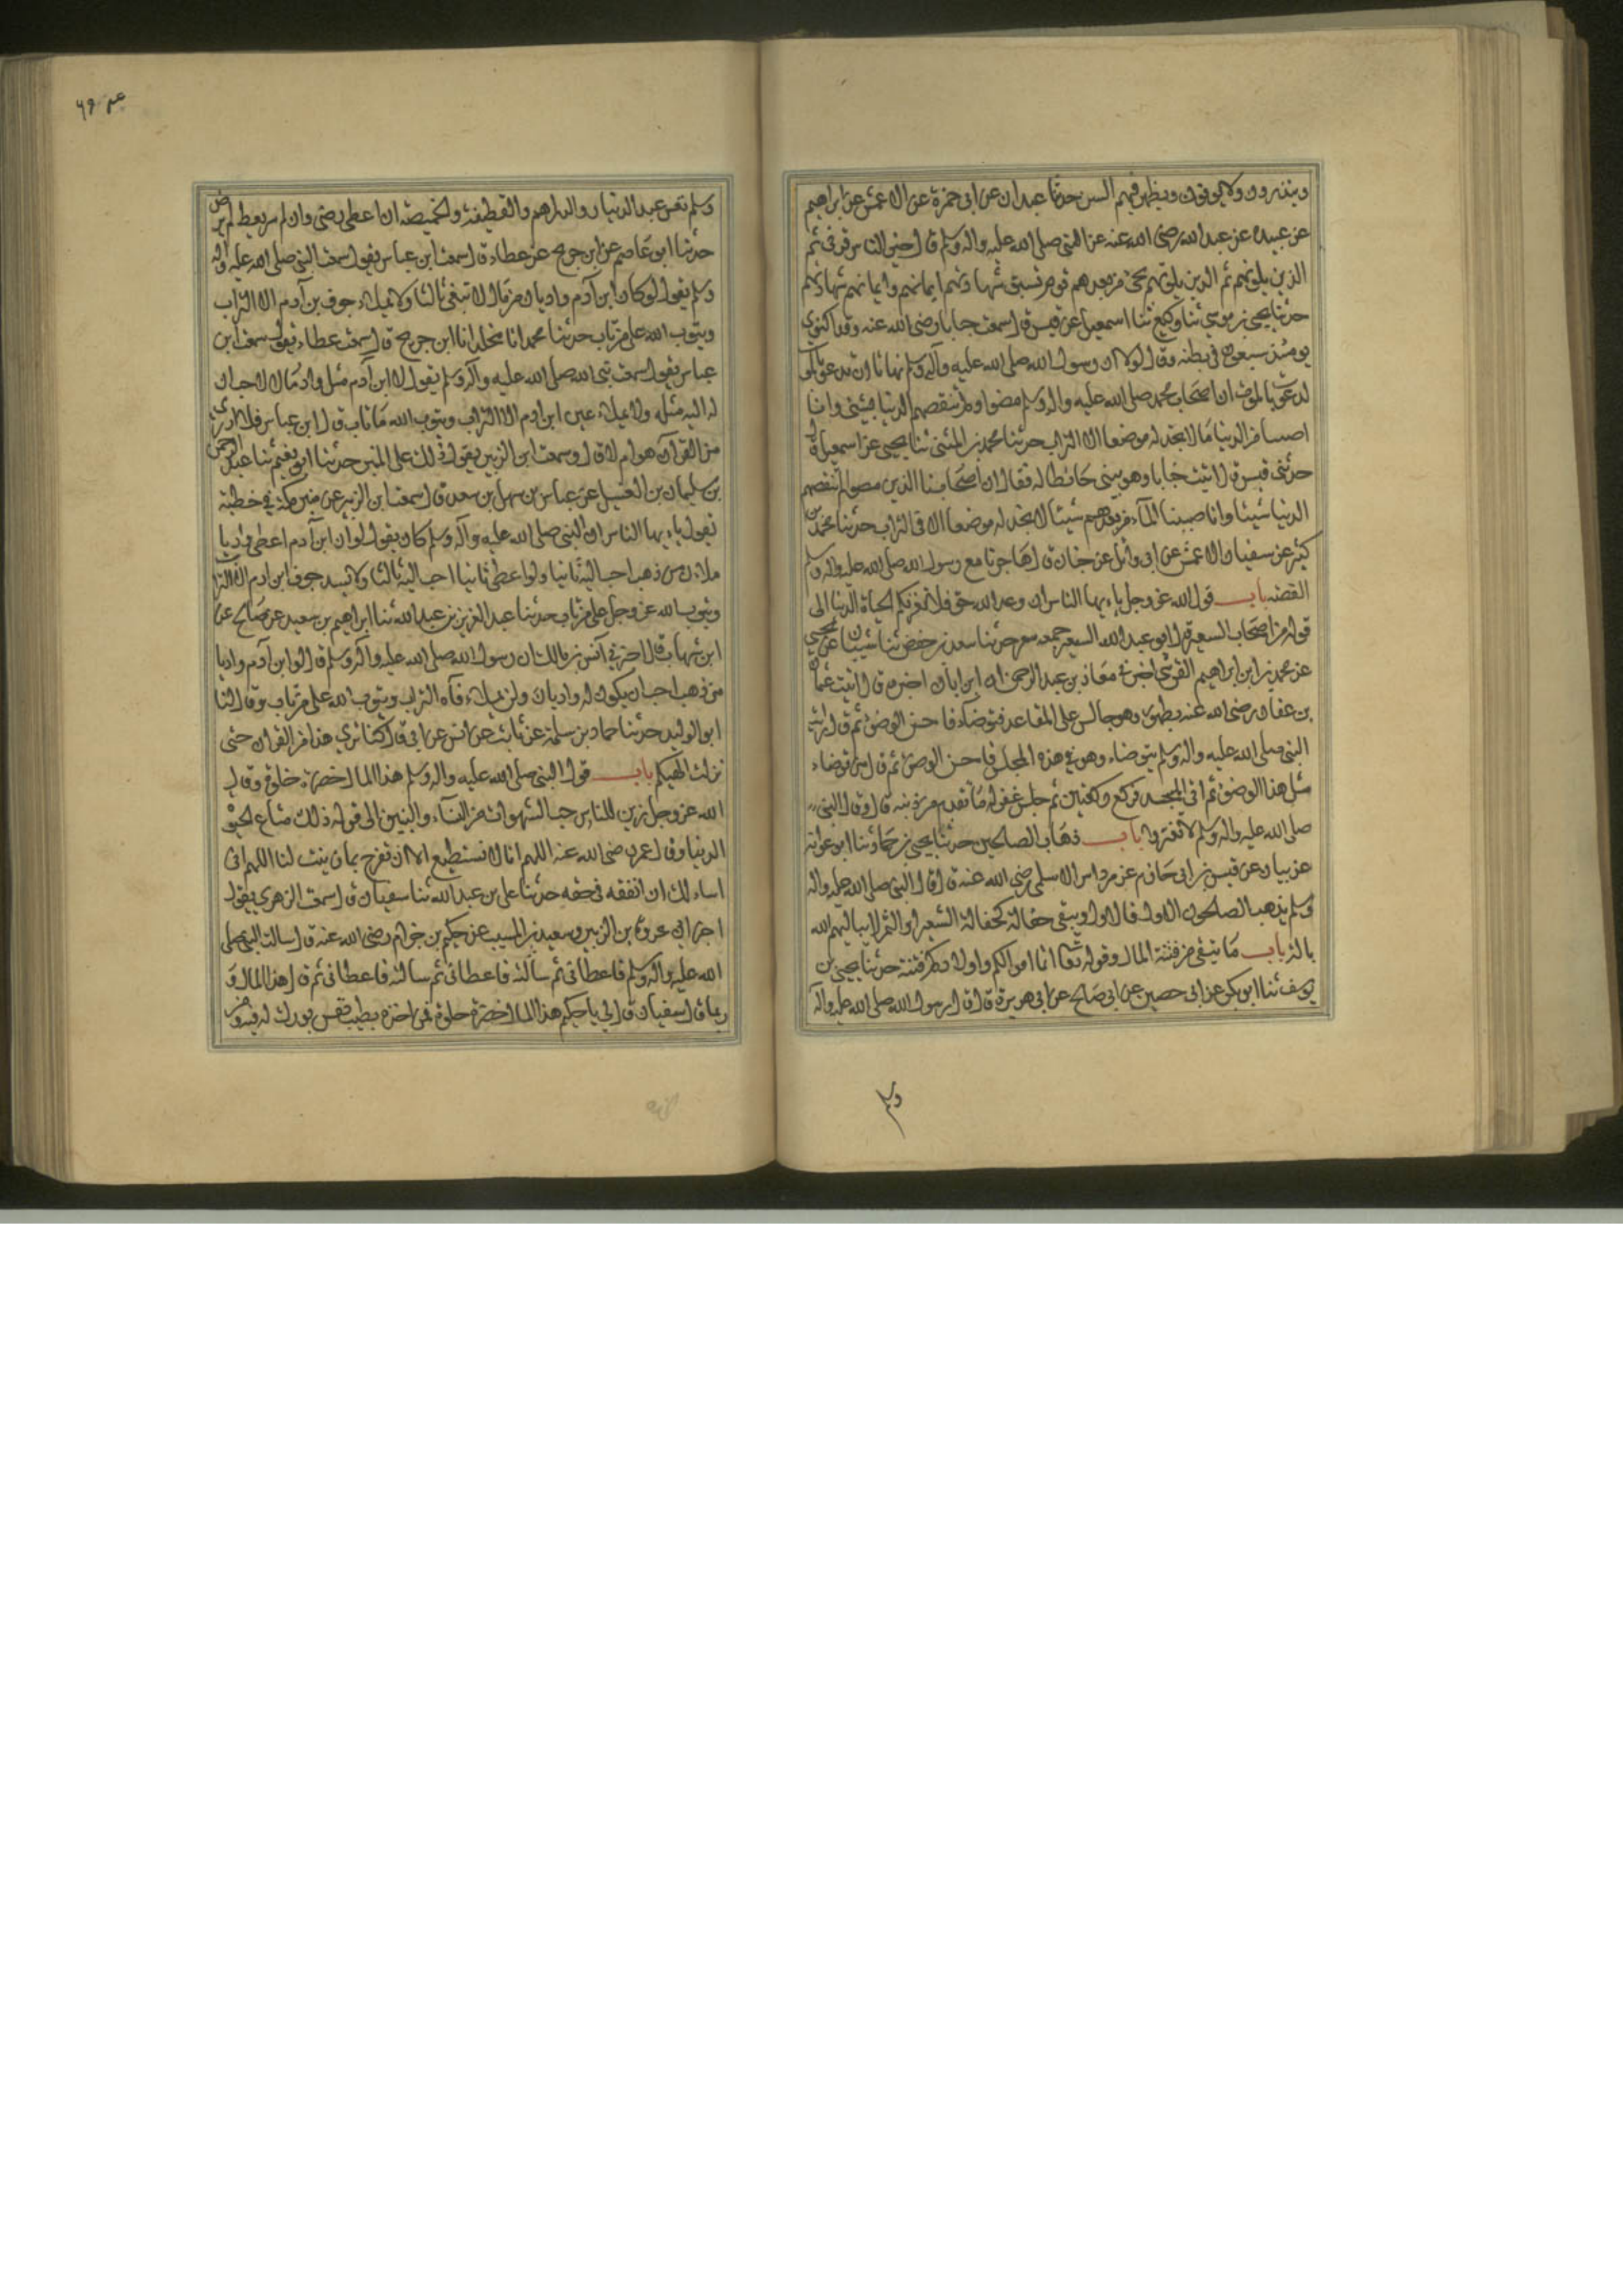 وينذرون ولا يوفون ويظهر فيهم السمن حدثنا عبدان عن ابى حمزة عن الاعمش عن ابراهيم
عن عبيده عن عبد الله رضى الله عنه عن النبى صلى الله عليه واله وسلم قال خير الناس قرنى ثم
الذين يلونهم ثم الذين يلونهم ثم يجئ من بعدهم قوم تسبق شهادتهم ايمانهم وايمانهم شهادتهم
حدثنا يحيى بن موسى ثنا وكيع ثنا اسمعيل عن قيس قال سمعت خبابا رضى الله عنه وقد اكتوى
يومئذ سبعا فى بطنه وقال لولا ان رسول الله صلى الله عليه وآله وسلم نهانا ان ندعو بالموت
لدعوت بالموت ان اصحاب محمد صلى الله عليه واله وسلم مضوا ولم تنقصهم الدنيا بشئ وانا
اصبنا من الدنيا مالا نجد له موضعا الا التراب حدثنا محمد بن المثنى ثنا يحيى عن اسمعيل قال
حدثنى قيس قال اتيت خبابا وهو يبنى حائطا له فقال ان اصحابنا الذين مضوا لم تنقصهم
الدنيا شيئا وانا اصبنا من بعدهم شيئا لا نجد له موضعا الا فى التراب حدثنا محمد بن
كثير عن سفيان الاعمش عن ابى وائل عن خباب قال هاجرنا مع رسول الله صلى الله عليه واله وسلم
القصه باب قول الله عز وجل يا ايها الناس ان وعد الله حق فلا تغرنكم الحياة الدنيا الى
قوله من اصحاب السعير قال ابو عبد الله السعير جمعه سعر حدثنا سعد بن حفص ثنا شيبان عن يحيى
عن محمد بن ابراهيم القرشى اخبرنى معاذ بن عبد الرحمن ان ابن ابان اخبره قال اتيت عثمان
بن عفان رضى الله عنه بطهور وهو جالس على المقاعد فتوضأ فاحسن الوضوء ثم قال رايت
النبى صلى الله عليه واله وسلم يتوضاء وهو فى هذه المجلس فاحسن الوضوء ثم قال من توضاء
مثل هذا الوضوء ثم اتى المسجد فركع ركعتين ثم جلس غفر له ما تقدم من ذنبه قال وقال النبى
صلى الله عليه واله وسلم لا تغتروا باب ذهاب الصالحين حدثنا يحيى بن حماد ثنا ابو عوانه
عن بيان عن قيس بن ابى حازم عن مرداس الاسلمى رضى الله عنه قال قال النبى صلى الله عليه واله
وسلم يذهب الصالحون الاول فالاول ويبقى حفالة كحفالة الشعير او التمر لا يباليهم الله
بالة باب ما يتقى من فتنة المال وقوله تعالى انما اموالكم واولادكم فتنة حدثنا يحيى بن
يوسف ثنا ابو بكر عن ابى حصين عن ابى صالح عن ابى هريرة قال قال رسول الله صلى الله عليه وآله
وسلم
٦٩
وسلم تعس عبد الدنيار والدراهم والقطيفة والخميصة ان اعطى رضى وان لم يعط لم يرض
حدثنا ابو عاصم عن ابن جريج عن عطاء قال سمعت ابن عباس يقول سمعت النبى صلى الله عليه واله
وسلم يقول لو كان لابن آدم واديان من مال لابتغى ثالثا ولا يملاء جوف بن آدم الا التراب
ويتوب الله على من تاب حدثنا محمد انا مخلد انا ابن جريج قال سمعت عطاء يقول سمعت ابن
عباس يقول سمعت نبى الله صلى الله عليه وآله وسلم يقول لو ان لابن آدم مثل واد مالا لاحب ان
له اليه مثله ولا يملاء عين ابن ادم الا التراب ويتوب الله من تاب قال ابن عباس فلا ادرى
من القرآن هو ام لا قال وسمعت ابن الزبير يقول ذلك على المنبر حدثنا ابو نعيم ثنا عبد الرحمن
بن سليمان بن الغسيل عن عباس بن سهل بن سعد قال سمعت ابن الزبير على منبر مكة فى خطبة
يقول يا ايها الناس ان النبى صلى الله عليه وآله وسلم كان يقول لو ان ابن آدم اعطى واديا
ملاء من ذهب احب اليه ثانيا ولو اعطى ثانيا احب اليه ثالثا ولا يسد جوف ابن ادم الا التراب
ويتوب الله عز وجل على من تاب حدثنا عبد العزيز بن عبد الله ثنا ابراهيم بن سعيد عن صالح عن
ابن شهاب قال اخبرنى انس بن مالك ان رسول الله صلى الله عليه واله وسلم قال لو ان لابن آدم واديا
من ذهب احب ان يكون له واديان ولن يملاء فاه التراب ويتوب الله على من تاب وقال لنا
ابو الوليد حدثنا حماد بن سلمة عن ثابت عن انس عن ابى قال كنا نرى هذا من القران حتى
نزلت الهيكم باب قول النبى صلى الله عليه واله وسلم هذا المال خضرة حلوة وقال
الله عز وجل زين للناس حب الشهوات من النساء والبنين الى قوله ذلك متاع الحيوة
الدنيا وقال عمر رضى الله عنه اللهم انا لا نستطيع الا ان نفرح بما زينت لنا اللهم انى
اساءلك ان انفقه فى حقه حدثنا على بن عبد الله ثنا سفيان قال سمعت الزهرى يقول
اخبرنى عروة بن الزبير وسعيد بن المسيب عن حكيم بن حزام رضى الله عنه قال سالت النبى صلى
الله عليه واله وسلم فاعطانى ثم سألته فاعطانى ثم سالته فاعطانى ثم قال هذا المال و
ربما قال سفيان قال لى يا حكيم هذا المال خضرة حلوة فمن اخذه بطيب نفس بورك له فيه ومن